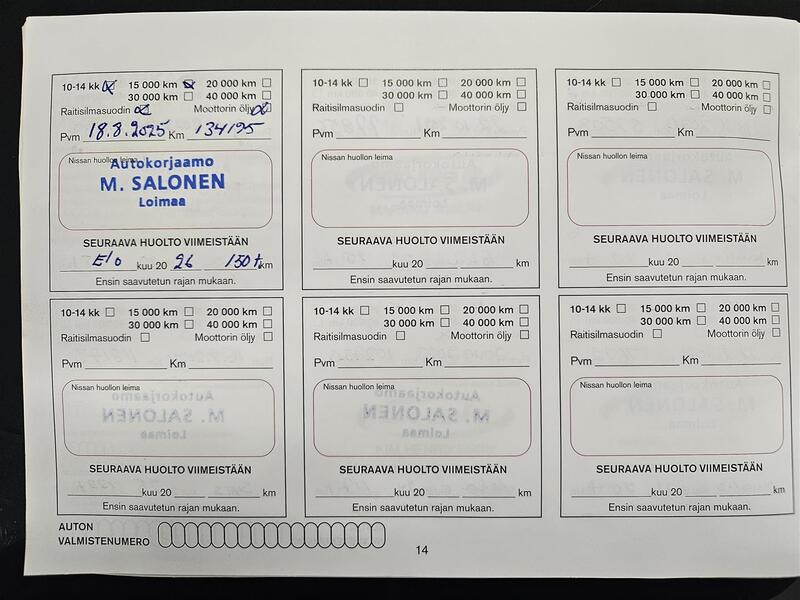 10-14 kk ☒ 15 000 km ☒ 20 000 km ☐
30 000 km ☐ 40 000 km ☐
Raitisilmasuodin ☒ Moottorin öljy ☒
Pvm 18.8.2025 Km 134195
Nissan huollon leima
Autokorjaamo
M. SALONEN
Loimaa
SEURAAVA HUOLTO VIIMEISTÄÄN
Elo kuu 20 26 150 t km
Ensin saavutetun rajan mukaan.
10-14 kk ☐ 15 000 km ☐ 20 000 km ☐
30 000 km ☐ 40 000 km ☐
Raitisilmasuodin ☐ Moottorin öljy ☐
Pvm Km
Nissan huollon leima
SEURAAVA HUOLTO VIIMEISTÄÄN
kuu 20 km
Ensin saavutetun rajan mukaan.
10-14 kk ☐ 15 000 km ☐ 20 000 km ☐
30 000 km ☐ 40 000 km ☐
Raitisilmasuodin ☐ Moottorin öljy ☐
Pvm Km
Nissan huollon leima
SEURAAVA HUOLTO VIIMEISTÄÄN
kuu 20 km
Ensin saavutetun rajan mukaan.
10-14 kk ☐ 15 000 km ☐ 20 000 km ☐
30 000 km ☐ 40 000 km ☐
Raitisilmasuodin ☐ Moottorin öljy ☐
Pvm Km
Nissan huollon leima
SEURAAVA HUOLTO VIIMEISTÄÄN
kuu 20 km
Ensin saavutetun rajan mukaan.
10-14 kk ☐ 15 000 km ☐ 20 000 km ☐
30 000 km ☐ 40 000 km ☐
Raitisilmasuodin ☐ Moottorin öljy ☐
Pvm Km
Nissan huollon leima
SEURAAVA HUOLTO VIIMEISTÄÄN
kuu 20 km
Ensin saavutetun rajan mukaan.
10-14 kk ☐ 15 000 km ☐ 20 000 km ☐
30 000 km ☐ 40 000 km ☐
Raitisilmasuodin ☐ Moottorin öljy ☐
Pvm Km
Nissan huollon leima
SEURAAVA HUOLTO VIIMEISTÄÄN
kuu 20 km
Ensin saavutetun rajan mukaan.
AUTON
VALMISTENUMERO
14